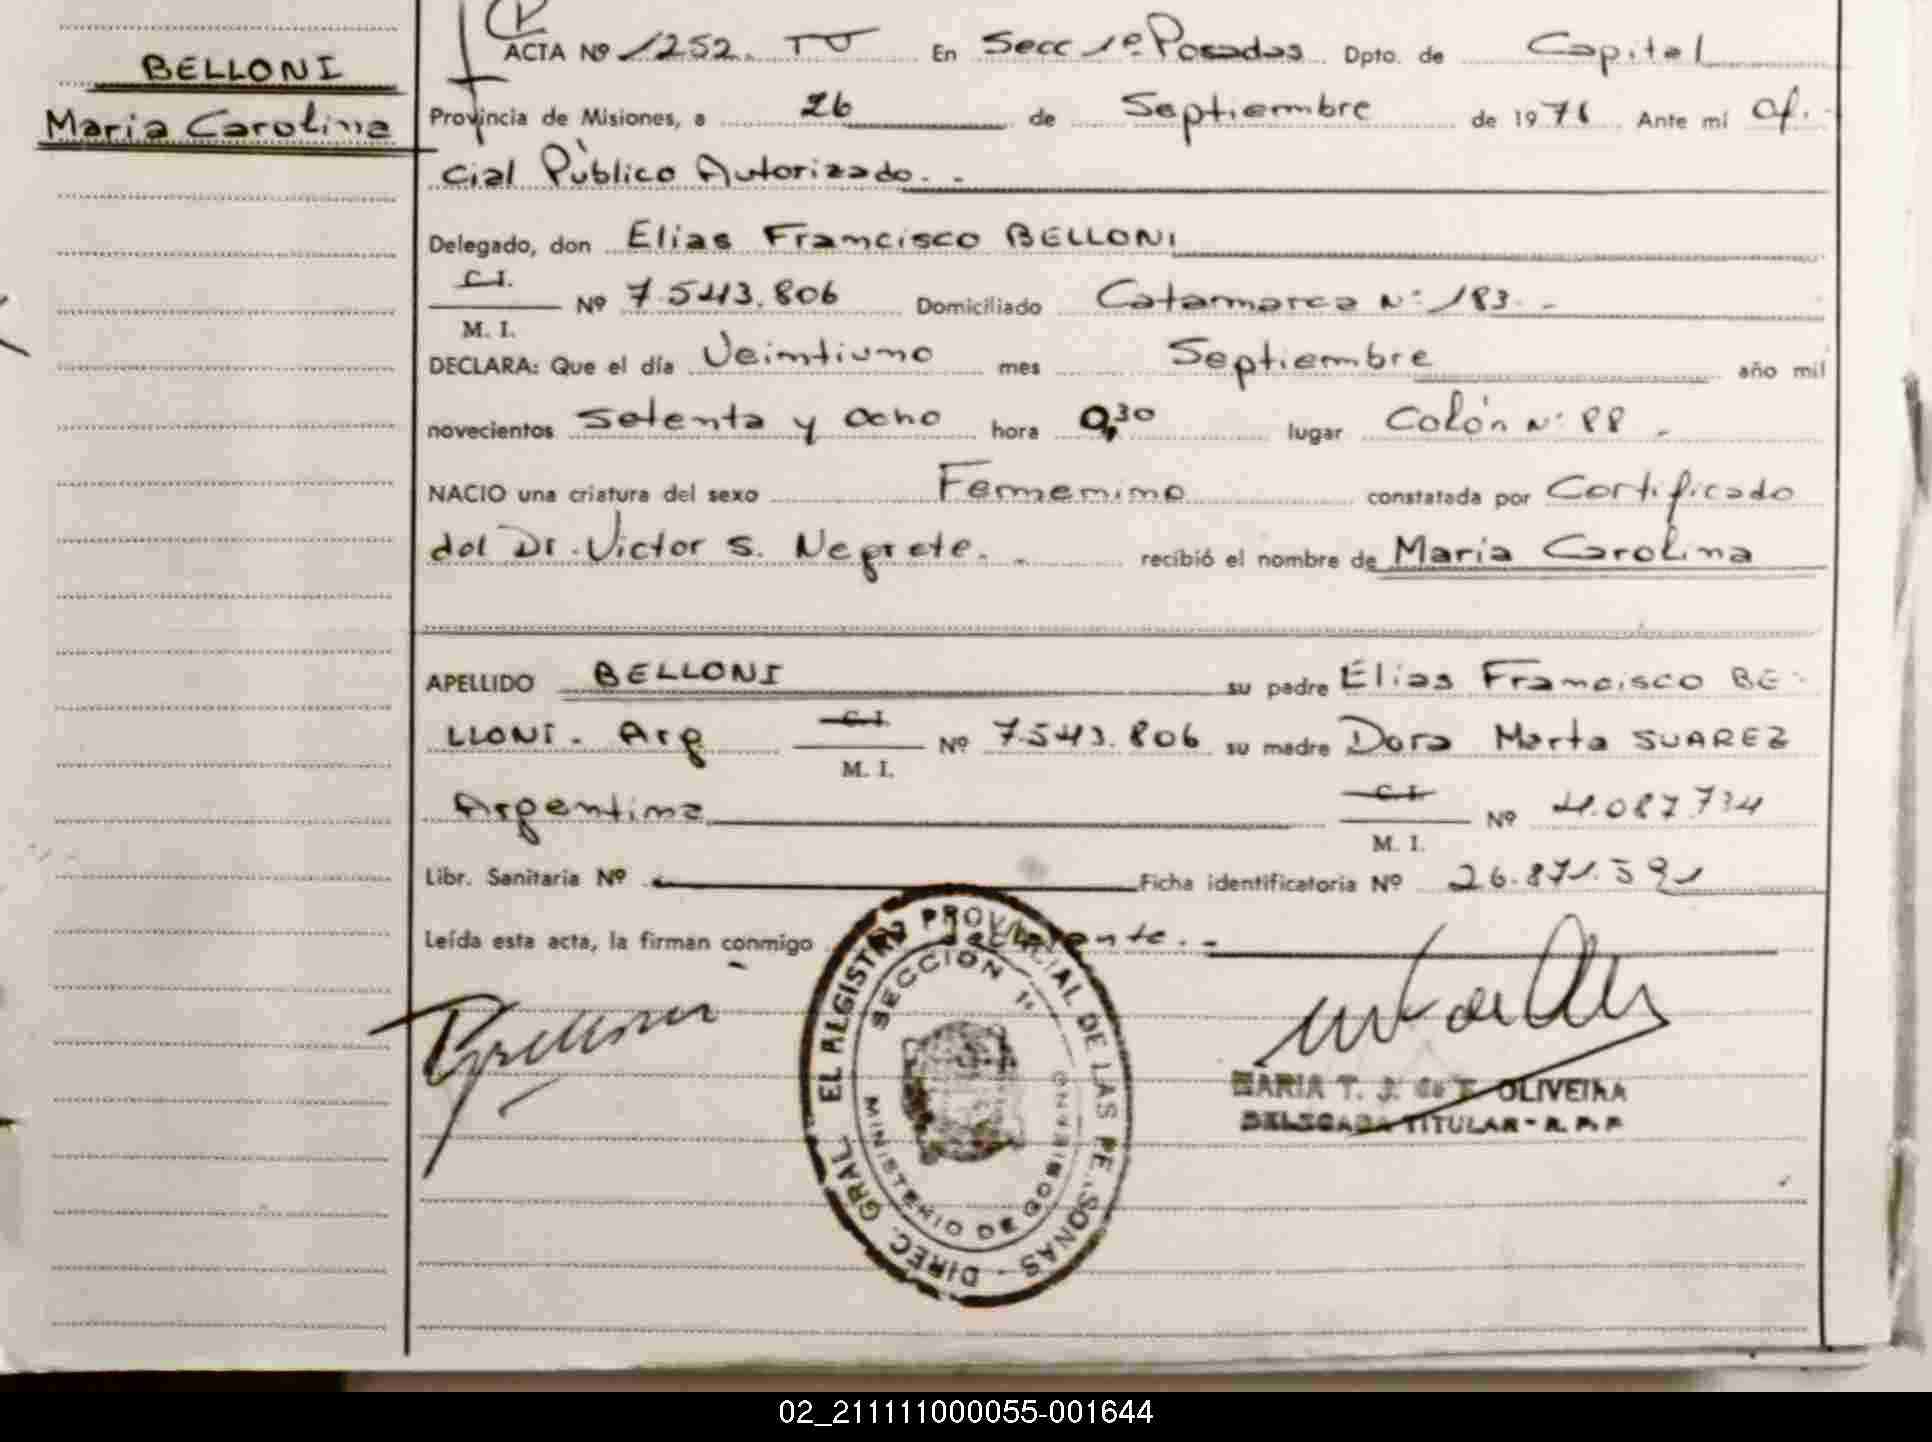 BELLONI
Maria Carolina
ACTA Nº 1252. TU En Secc 1º Posadas Dpto. de Capital
Provincia de Misiones, a 26 de Septiembre de 1978 Ante mí Ofi-
cial Público Autorizado.-
Delegado, don Elias Francisco BELLONI
C.I.
M. I.
Nº 7.543.806 Domiciliado Catamarca Nº 183.-
DECLARA: Que el día Veintiuno mes Septiembre año mil
novecientos setenta y ocho hora 0,30 lugar Colón Nº 88.-
NACIO una criatura del sexo Femenino constatada por Certificado
del Dr. Victor S. Negrete.- recibió el nombre de Maria Carolina
APELLIDO BELLONI su padre Elias Francisco BE-
LLONI- Arg C.I. M. I. Nº 7.543.806 su madre Dora Marta SUAREZ
Argentina C.I. M. I. Nº 4.087.734
Libr. Sanitaria Nº Ficha identificatoria Nº 26.871.591
Leída esta acta, la firman conmigo declarante.-
DIREC. GRAL. EL REGISTRO PROVINCIAL DE LAS PERSONAS -
SECCION 1ª
MINISTERIO DE GOBIERNO
MARIA T. J. de F. OLIVEIRA
DELEGADA TITULAR - R. P. P.
02_211111000055-001644